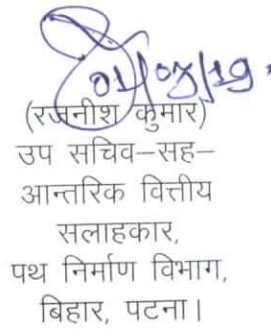 01/07/19.
(रजनीश कुमार)
उप सचिव–सह–
आन्तरिक वित्तीय
सलाहकार,
पथ निर्माण विभाग,
बिहार, पटना।